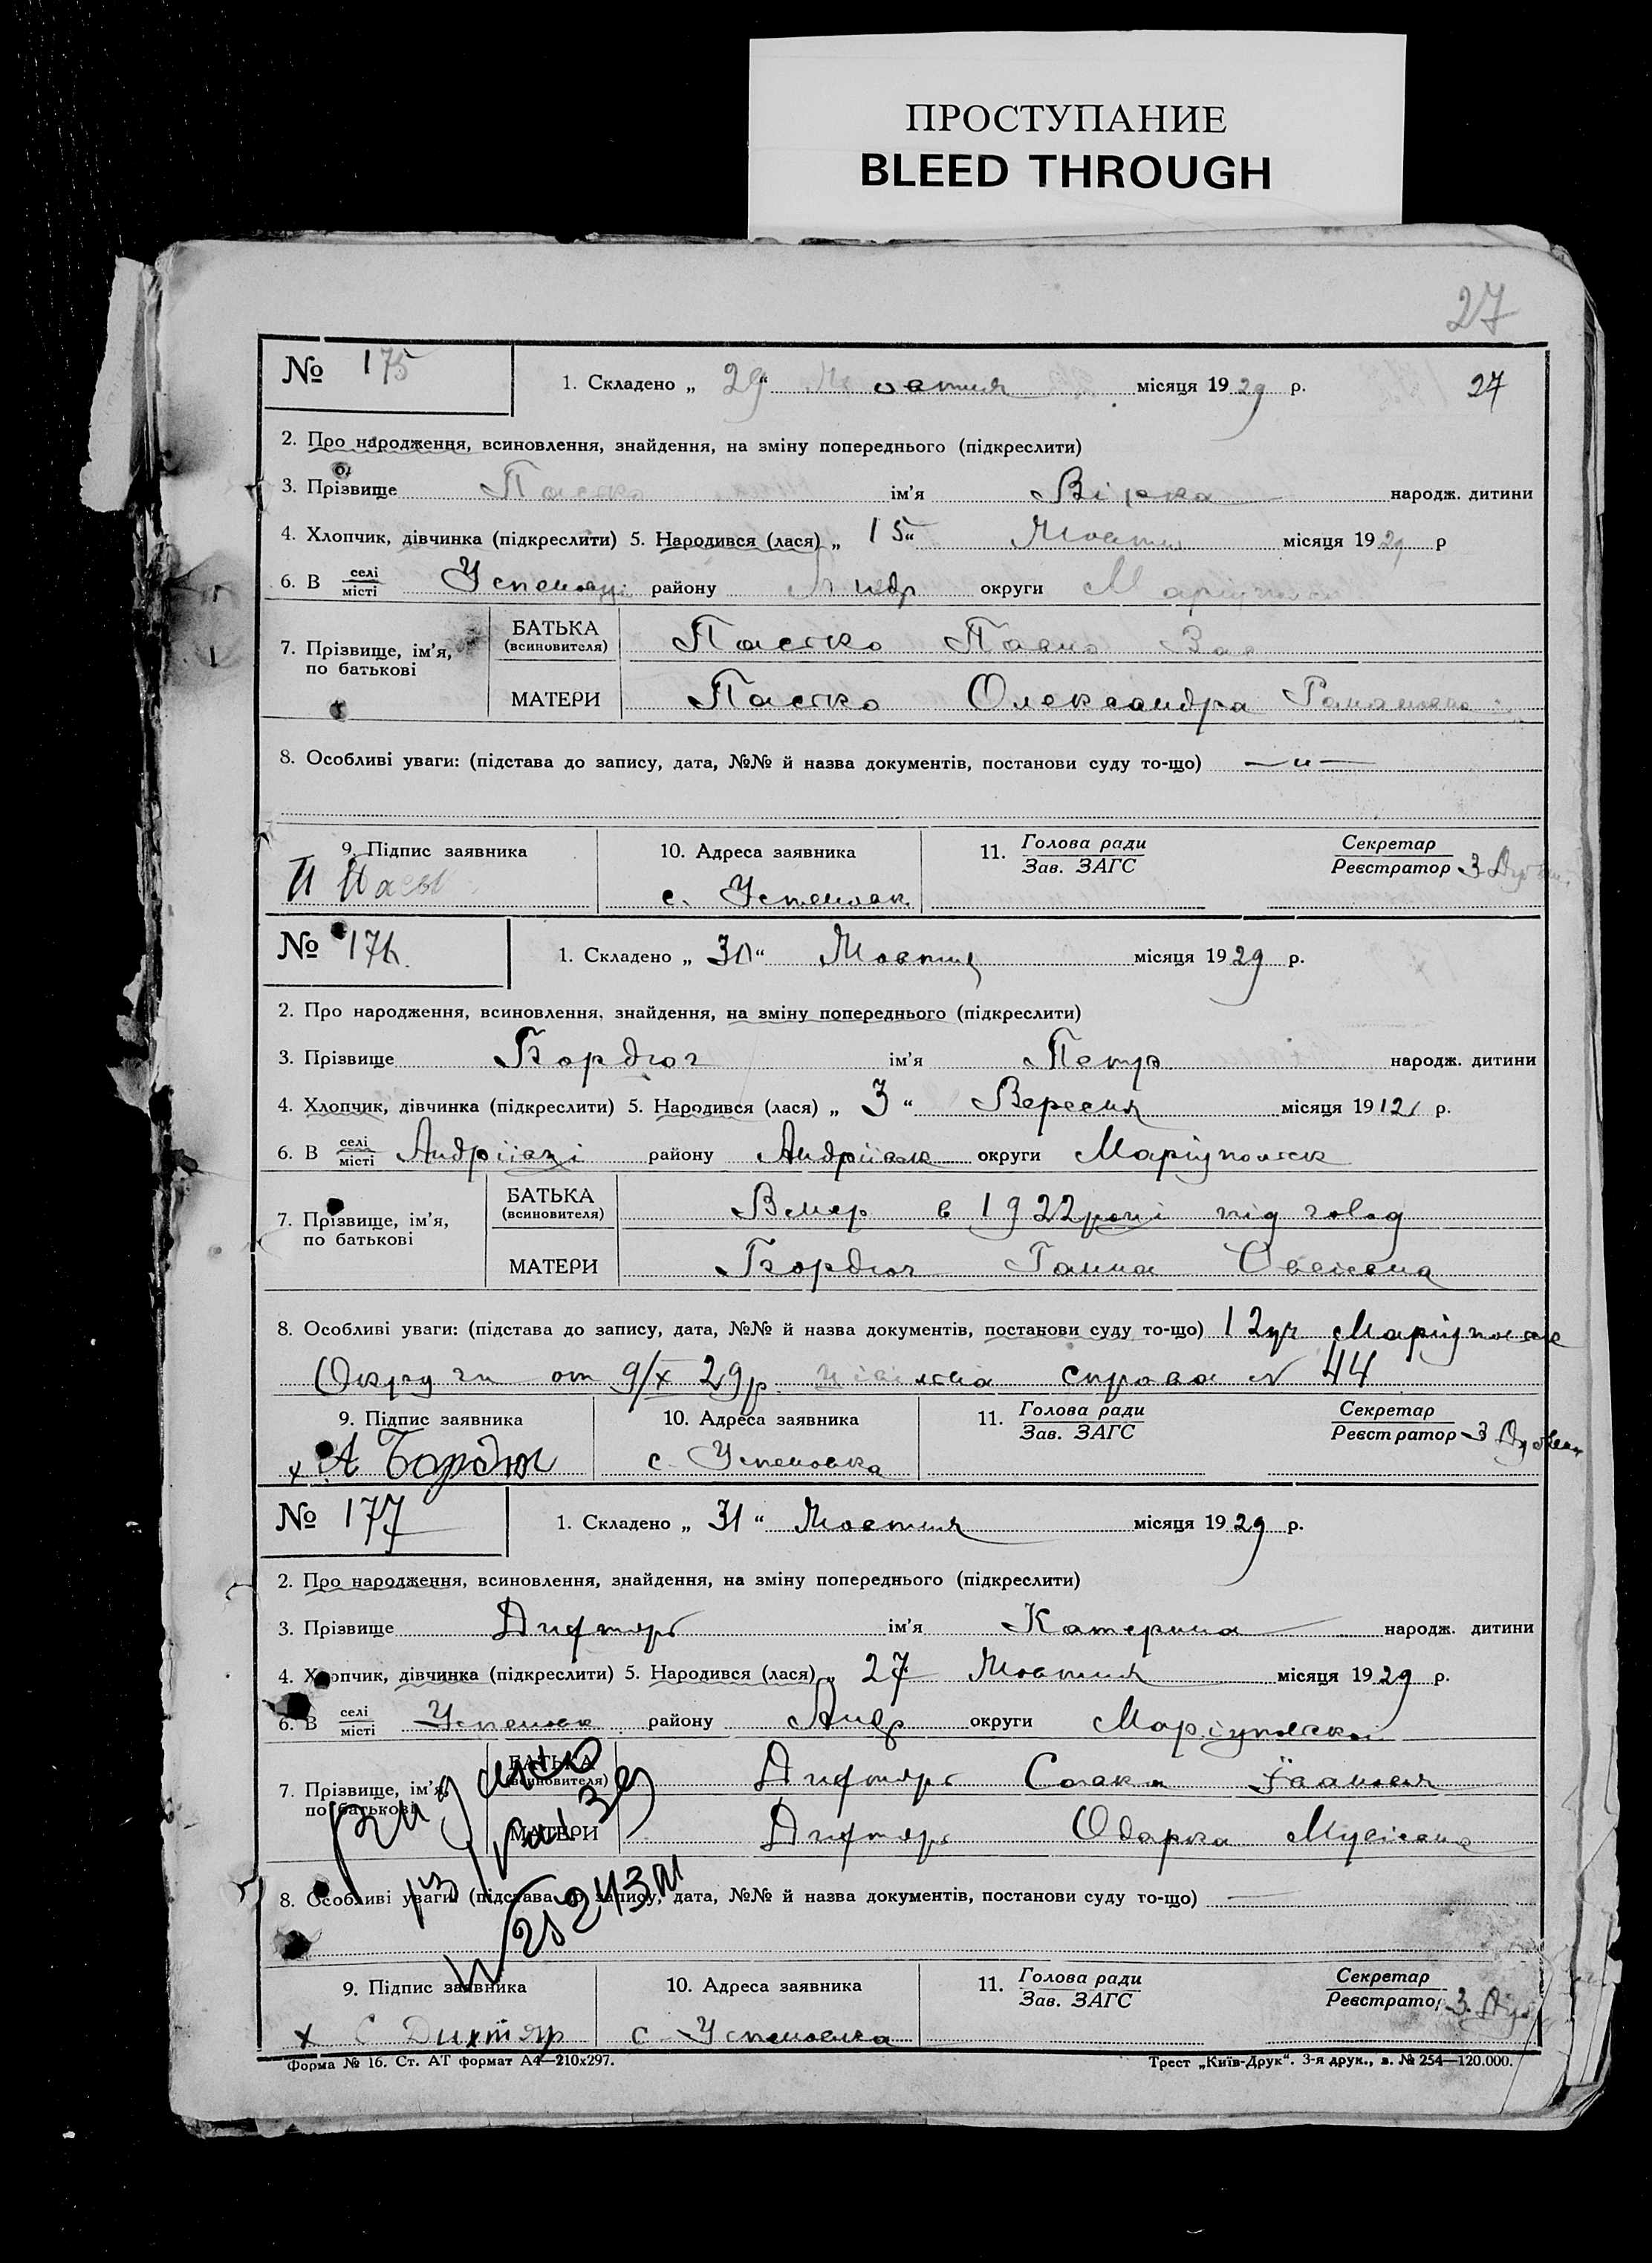 ПРОСТУПАНИЕ
BLEED THROUGH
27
№ 175 1. Складено „ 29 “ Жовтня місяця 1929 р. 27
2. Про народження, всиновлення, знайдення, на зміну попереднього (підкреслити)
3. Прізвище ім'я Вірка народж. дитини
4. Хлопчик, дівчинка (підкреслити) 5. Народився (лася) „ 15 “ Жовтня місяця 1929 р
6. В селі/місті району Андр округи Маріупольск
7. Прізвище, ім'я, по батькові
БАТЬКА (всиновителя) Павло Вас
МАТЕРИ Олександра Романовна
8. Особливі уваги: (підстава до запису, дата, №№ й назва документів, постанови суду то-що) —„—
9. Підпис заявника 10. Адреса заявника 11. Голова ради/Зав. ЗАГС Секретар/Реєстратор
с. Успеновк
№ 176. 1. Складено „ 30 “ Жовтня місяця 1929 р.
2. Про народження, всиновлення, знайдення, на зміну попереднього (підкреслити)
3. Прізвище Бордюг ім'я Петро народж. дитини
4. Хлопчик, дівчинка (підкреслити) 5. Народився (лася) „ 3 “ Вересня місяця 1912 р.
6. В селі/місті Андріївці району Андріївск округи Маріупольск
7. Прізвище, ім'я, по батькові
БАТЬКА (всиновителя) Вмер в 1922 році під голод
МАТЕРИ Бордюг Ганна Овсієвна
8. Особливі уваги: (підстава до запису, дата, №№ й назва документів, постанови суду то-що) 12 уч Маріупольске
Округи от 9/X 29р. цівільна справа № 44
9. Підпис заявника 10. Адреса заявника 11. Голова ради/Зав. ЗАГС Секретар/Реєстратор
х А Бордюг с. Успеновка
№ 177 1. Складено „ 31 “ Жовтня місяця 1929 р.
2. Про народження, всиновлення, знайдення, на зміну попереднього (підкреслити)
3. Прізвище Дихтярь ім'я Катерина народж. дитини
4. Хлопчик, дівчинка (підкреслити) 5. Народився (лася) „ 27 “ Жовтня місяця 1929 р.
6. В селі/місті Успеновк району Андр округи Маріупольскої
7. Прізвище, ім'я, по батькові
БАТЬКА (всиновителя) Дихтярь Іванович
МАТЕРИ Дихтярь Одарка Мусієвна
8. Особливі уваги: (підстава до запису, дата, №№ й назва документів, постанови суду то-що)
9. Підпис заявника 10. Адреса заявника 11. Голова ради/Зав. ЗАГС Секретар/Реєстратор
х С Дихтяр с Успеновка
Форма № 16. Ст. АТ формат А4—210x297. Трест „Київ-Друк“. 3-я друк., з. № 254—120.000.